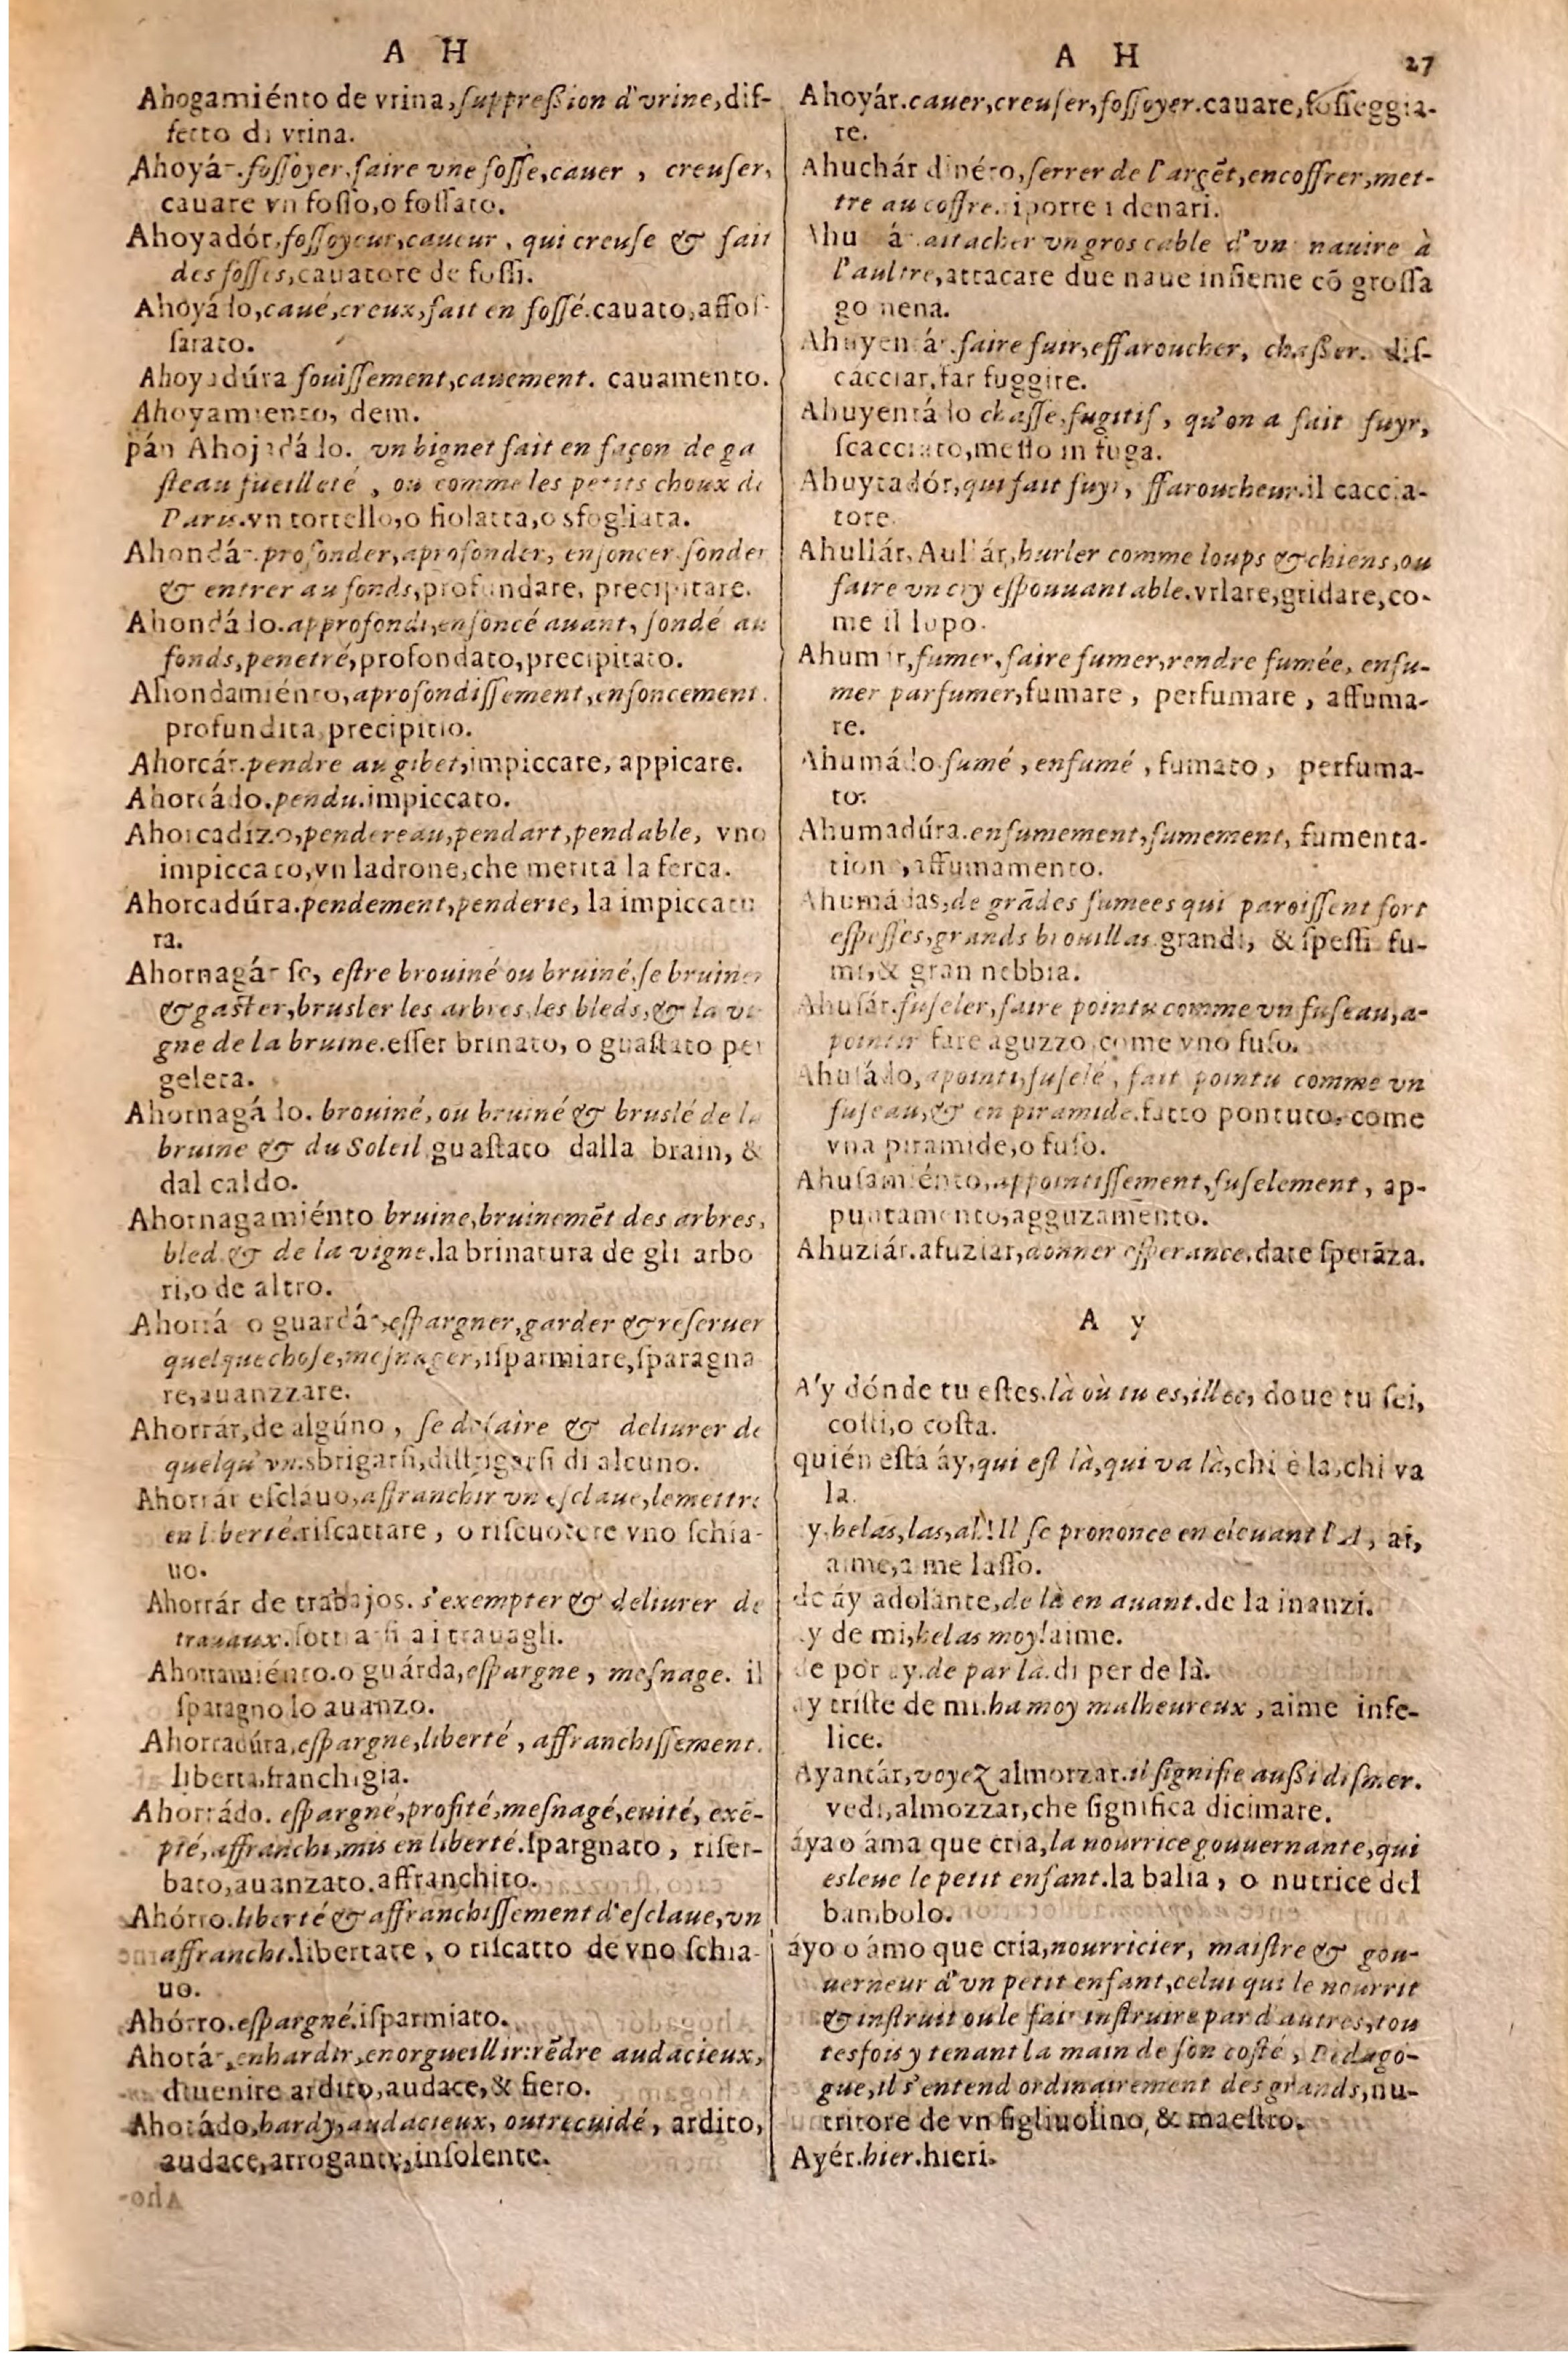 A H
Ahogamiénto de vrina, suppreßion d'vrine, dif-
fetto di vrina.
Ahoyár. fossoyer, faire vne fosse, cauer , creuser,
cauare vn fosso, o fossato.
Ahoyadór. fossoyeur, caueur , qui creuse & fait
des fosses, cauatore de fossi.
Ahoyádo, caué, creux, fait en fossé. cauato, affos-
sarato.
Ahoyadúra fouissement, cauement. cauamento.
Ahoyamiento, dem.
pán Ahojadádo. vn bignet fait en façon de ga
steau fueilleté , ou comme les petits choux de
Paris. vn tortello, o fiolatta, o sfogliata.
Ahondár. profonder, aprofonder, enfoncer, fonder
& entrer au fonds, profundare, precipitare.
Ahondádo. approfondi, enfoncé auant, fondé au
fonds, penetré, profondato, precipitato.
Ahondamiénto, aprofondissement, enfoncement.
profundita, precipitio.
Ahorcár. pendre au gibet, impiccare, appicare.
Ahorcádo. pendu. impiccato.
Ahorcadizo, pendereau, pendart, pendable, vno
impiccato, vn ladrone, che merita la forca.
Ahorcadúra. pendement, penderie, la impiccatu
ra.
Ahornagár se, estre brouiné ou bruiné, se bruiner
& gaster, brusler les arbres, les bleds, & la vi
gne de la bruine. esser brinato, o guastato per
geleta.
Ahornagádo. brouiné, ou bruiné & bruslé de la
bruine & du Soleil guastato dalla brain, &
dal caldo.
Ahornagamiénto bruine, bruinemẽt des arbres,
bled. & de la vigne. la brinatura de gli arbo
ri, o de altro.
Ahorrá o guardár, espargner, garder & reseruer
quelque chose, mesnager, isparmiare, sparagna
re, auanzzare.
Ahorrár, de algúno , se defaire & deliurer de
quelqu'vn. sbrigarsi, distrigarsi di alcuno.
Ahorrár esclauo, affranchir vn esclaue, le mettre
en liberté. riscattare , o riscuotere vno schia-
uo.
Ahorrár de trabajos. s'exempter & deliurer de
trauaux. sottrarsi a i trauagli.
Ahorramiénto. o guárda, espargne , mesnage. il
sparagno lo auanzo.
Ahorradúra, espargne, liberté , affranchissement.
liberta, franchigia.
Ahorrádo. espargné, profité, mesnagé, euité, exẽ-
pté, affranchi, mis en liberté. spargnato , riser-
bato, auanzato. affranchito.
Ahórro. liberté & affranchissement d'esclaue, vn
affranchi. libertate , o riscatto de vno schia-
uo.
Ahórro. espargné. isparmiato.
Ahotár, enhardir, enorgueillir: rẽdre audacieux,
diuenire ardito, audace, & fiero.
Ahotádo, hardy, audacieux, outrecuidé , ardito,
audace, arrogante, insolente.
A H 27
Ahoyár. cauer, creuser, fossoyer. cauare, fosseggia-
re.
Ahuchár dinéro, serrer de l'argẽt, encoffrer, met-
tre au coffre. iporre i denari.
attacher vn gros cable d'vn nauire à
l'aultre, attacare due naue insieme cõ grossa
go nena.
Ahuyentár. faire fuir, effaroucher, chaßer. dis-
cacciar, far fuggire.
Ahuyentádo chasse, fugitif , qu'on a fait fuyr,
scacciato, messo in fuga.
Ahuytadór, qui fait fuyr, ffaroucheur. il caccia-
tore.
Ahullár, Aullár, hurler comme loups & chiens, ou
faire vn cry espouuantable. vrlare, gridare, co-
me il lupo.
Ahumár, fumer, faire fumer, rendre fumée, enfu-
mer parfumer, fumare , perfumare , affuma-
re.
Ahumádo fumé , enfumé , fumato , perfuma-
to.
Ahumadúra. enfumement, fumement, fumenta-
tione, affumamento.
Ahumádas, de grãdes fumees qui paroissent fort
espesses, grands brouillas. grandi, & spessi fu-
mi, & gran nebbia.
Ahusár. fuseler, faire pointu comme vn fuseau, a-
pointir fare aguzzo, come vno fuso.
Ahusádo, apointi, fuselé , fait pointu comme vn
fuseau, & en piramide. fatto pontuto, come
vna piramide, o fuso.
Ahusamiénto, appointissement, fuselement , ap-
puntamento, agguzamento.
Ahuziár. afuziar, donner esperance. dare sperãza.
A y
A'y dónde tu estes. là où tu es, illec, doue tu sei,
costi, o costa.
quién está áy, qui est là, qui va là, chi è la, chi va
la.
y. helas, las, al! Il se prononce en eleuant l'A, ai,
aime, a me lasso.
de áy adolánte, de là en auant. de la inanzi.
y de mi, helas moy! aime.
de por ay. de par là. di per de là.
ay triste de mi. ha moy malheureux , aime infe-
lice.
Ayantár, voyez almorzar. il signifie außi disner.
vedi, almozzar, che significa dicimare.
áya o áma que cria, la nourrice gouuernante, qui
esleue le petit enfant. la balia , o nutrice del
bambolo.
áyo o ámo que cria, nourricier, maistre & gou-
uerneur d'vn petit enfant, celui qui le nourrit
& instruit ou le fait instruire par d'autres, tou
tesfois y tenant la main de son costé , Pedago-
gue, il s'entend ordinairement des grands, nu-
tritore de vn figliuolino, & maestro.
Ayér. hier. hieri.